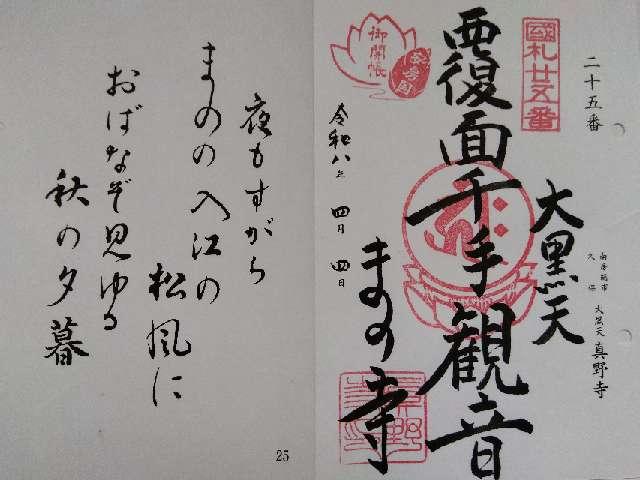 二十五番
國札廿五番
大黒天
南房総市
久保
大黒天 真野寺
覆面千手観音
まの寺
御開帳
安房国
令和八年 四月 四日
夜もすがら
まのの入江の
松風に
おばなぞ見ゆる
秋の夕暮
25